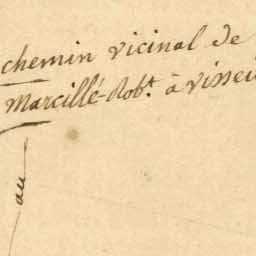 chemin vicinal de
Marcillé-Rob.t à Vissei
au